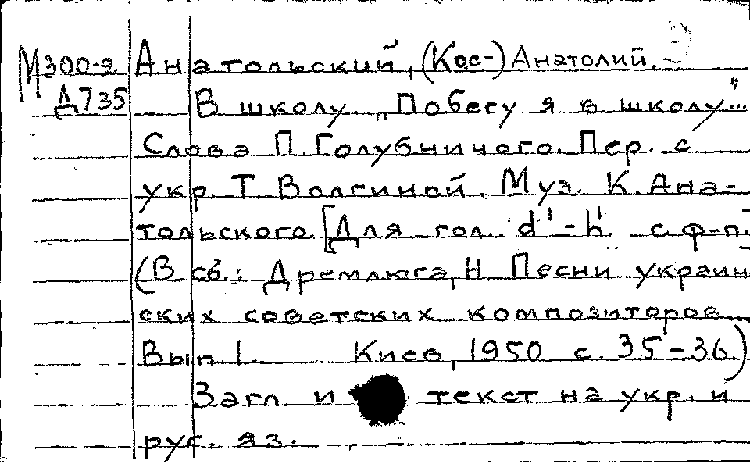 М300-2 Анатольский, (Кос-) Анатолий.
Д735 В школу „Побегу я в школу"...
Слова П. Голубничого. Пер. с
укр. Т. Волгиной. Муз. К. Ана-
тольского. [Для гол. d'-h' с ф-п.
(В сб.: Дремлюга, Н. Песни украин
ских советских композиторов.
Вып 1. Киев, 1950 с. 35-36)
Загл. и текст на укр. и
рус. яз.